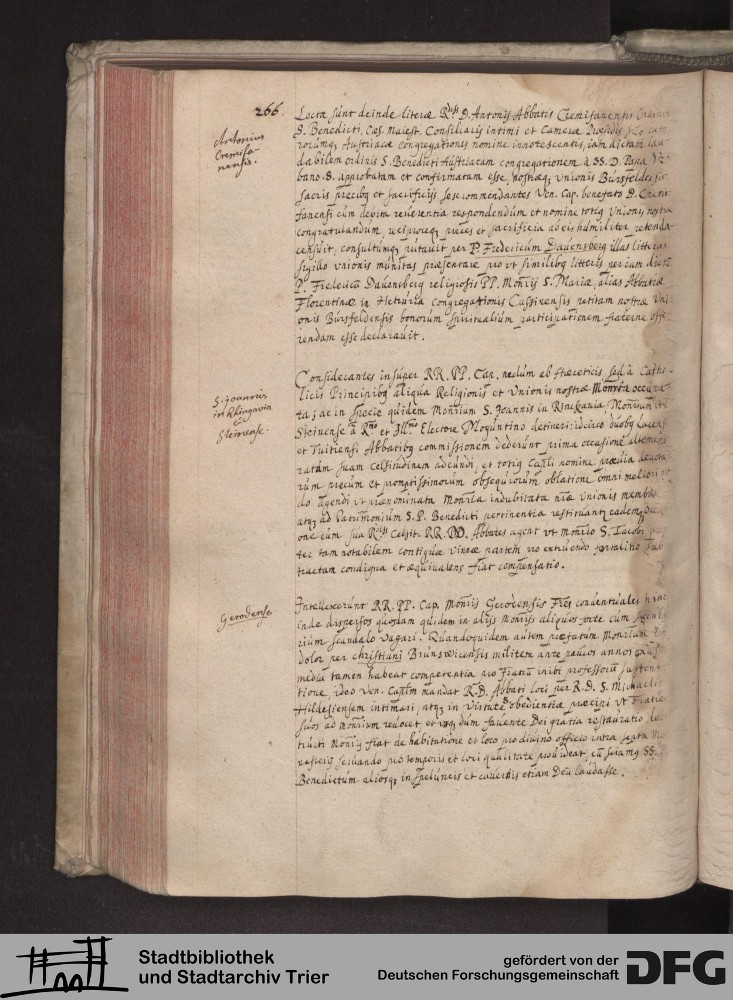 266.
Antonius
Cremifa-
nensis.
Lecta sunt deinde literæ R.mi D. Antonij Abbatis Cremifanensis Ordinis
S. Benedicti, Cæs. Maiest. Consiliarij intimi et Cameræ Præsidis
Austriacæ congregationis nomine innotescentis, iam dictam lau-
dabilem ordinis S. Benedicti Austriacam congregationem à SS. D. Papa Vr-
bano .8. approbatam et confirmatam esse, nostræq; Unionis Bursfelden
sacris precibq et sacrificijs se se commendantes Ven. Cap. benefato D. Cremi-
fanensi cum debita reuerentia respondendum et nomine totiq Unionis nostræ
congratulandum, reciprocq; preces et sacrificia ab eis humiliter
censuit, consultumq; putauit per P. Fridericum Dauensberg illas litteras
sigillo unionis munitas præsentare pro ut similibq litteris per eam dictu
P. Fredericu Dauensberg religiosis PP. Monrij S. Mariæ, alias Abbatiæ
Florentinæ in Hetruria congregationis Cassinensis petitam nostræ Uni-
onis Bursfeldensis bonorum spiritualium participationem fraterne offe-
rendam esse declarauit.
S. Joannis
in Rhingavia
&
Steinense.
Considerantes insuper RR. PP. Cap. nedum ab Hæreticis, sed à Catho-
licis Principibq aliqua Religionis et Unionis nostræ Monria occupa-
ta; ac in specie quidem Monrium S. Joannis in Rinckavia Monrium
Steinense à R.mo et Ill.mo Electore Moguntino detineri: idcirco duobq Lacensi
et Tuitiensi Abbatibq commissionem dederunt prima occasione
suam Celsitudinem adeundi, et totiq Capli nomine præuia deuota-
rum precum et promptissimorum obsequiorum oblatione omni meliori mo-
do agendi vt prænominata Monria indubitata nræ Unionis membra
atq; ad Patrimonium S. P. Benedicti pertinentia restituantr eadem occasi-
one cum sua R.ma Celsit. RR. DD. Abbates agent vt Monrio S. Jacobi
ter tam notabilem contiguæ vineæ partem pro extruendo fortalitio sub
tractam condigna et æquiualens fiat compensatio.
Gerodense
Intellexerunt RR. PP. Cap. Monrij Gerodensis Fres conuentuales hinc
inde dispersos quosdam quidem in alijs Monrijs aliquos forte cum
scandalo vagari. Quandoquidem autem præfatum Monrium
dolor per christiani Brunswicensis militem ante paucos annos
media tamen habeat competentia pro Fratru inibi professoru sustenta-
tione, ideo Ven. Caplm mandat R. D. Abbati loci per R. D. S. Michaelis
Hildesiensem intimari, atq; in virtute obedientiæ præcipi vt Fratres
suos ad Monrium reuocet et dum fauente Dei gratia restauratio
tructi Monrij fiat de habitatione et loco pro diuino officio intra septa
seruando pro temporis et loci qualitate prouideat, cu sciamq SS.
Benedictum aliosq; in speluncis et cauernis etiam Deu laudasse.
Stadtbibliothek
und Stadtarchiv Trier
gefördert von der
Deutschen Forschungsgemeinschaft
DFG